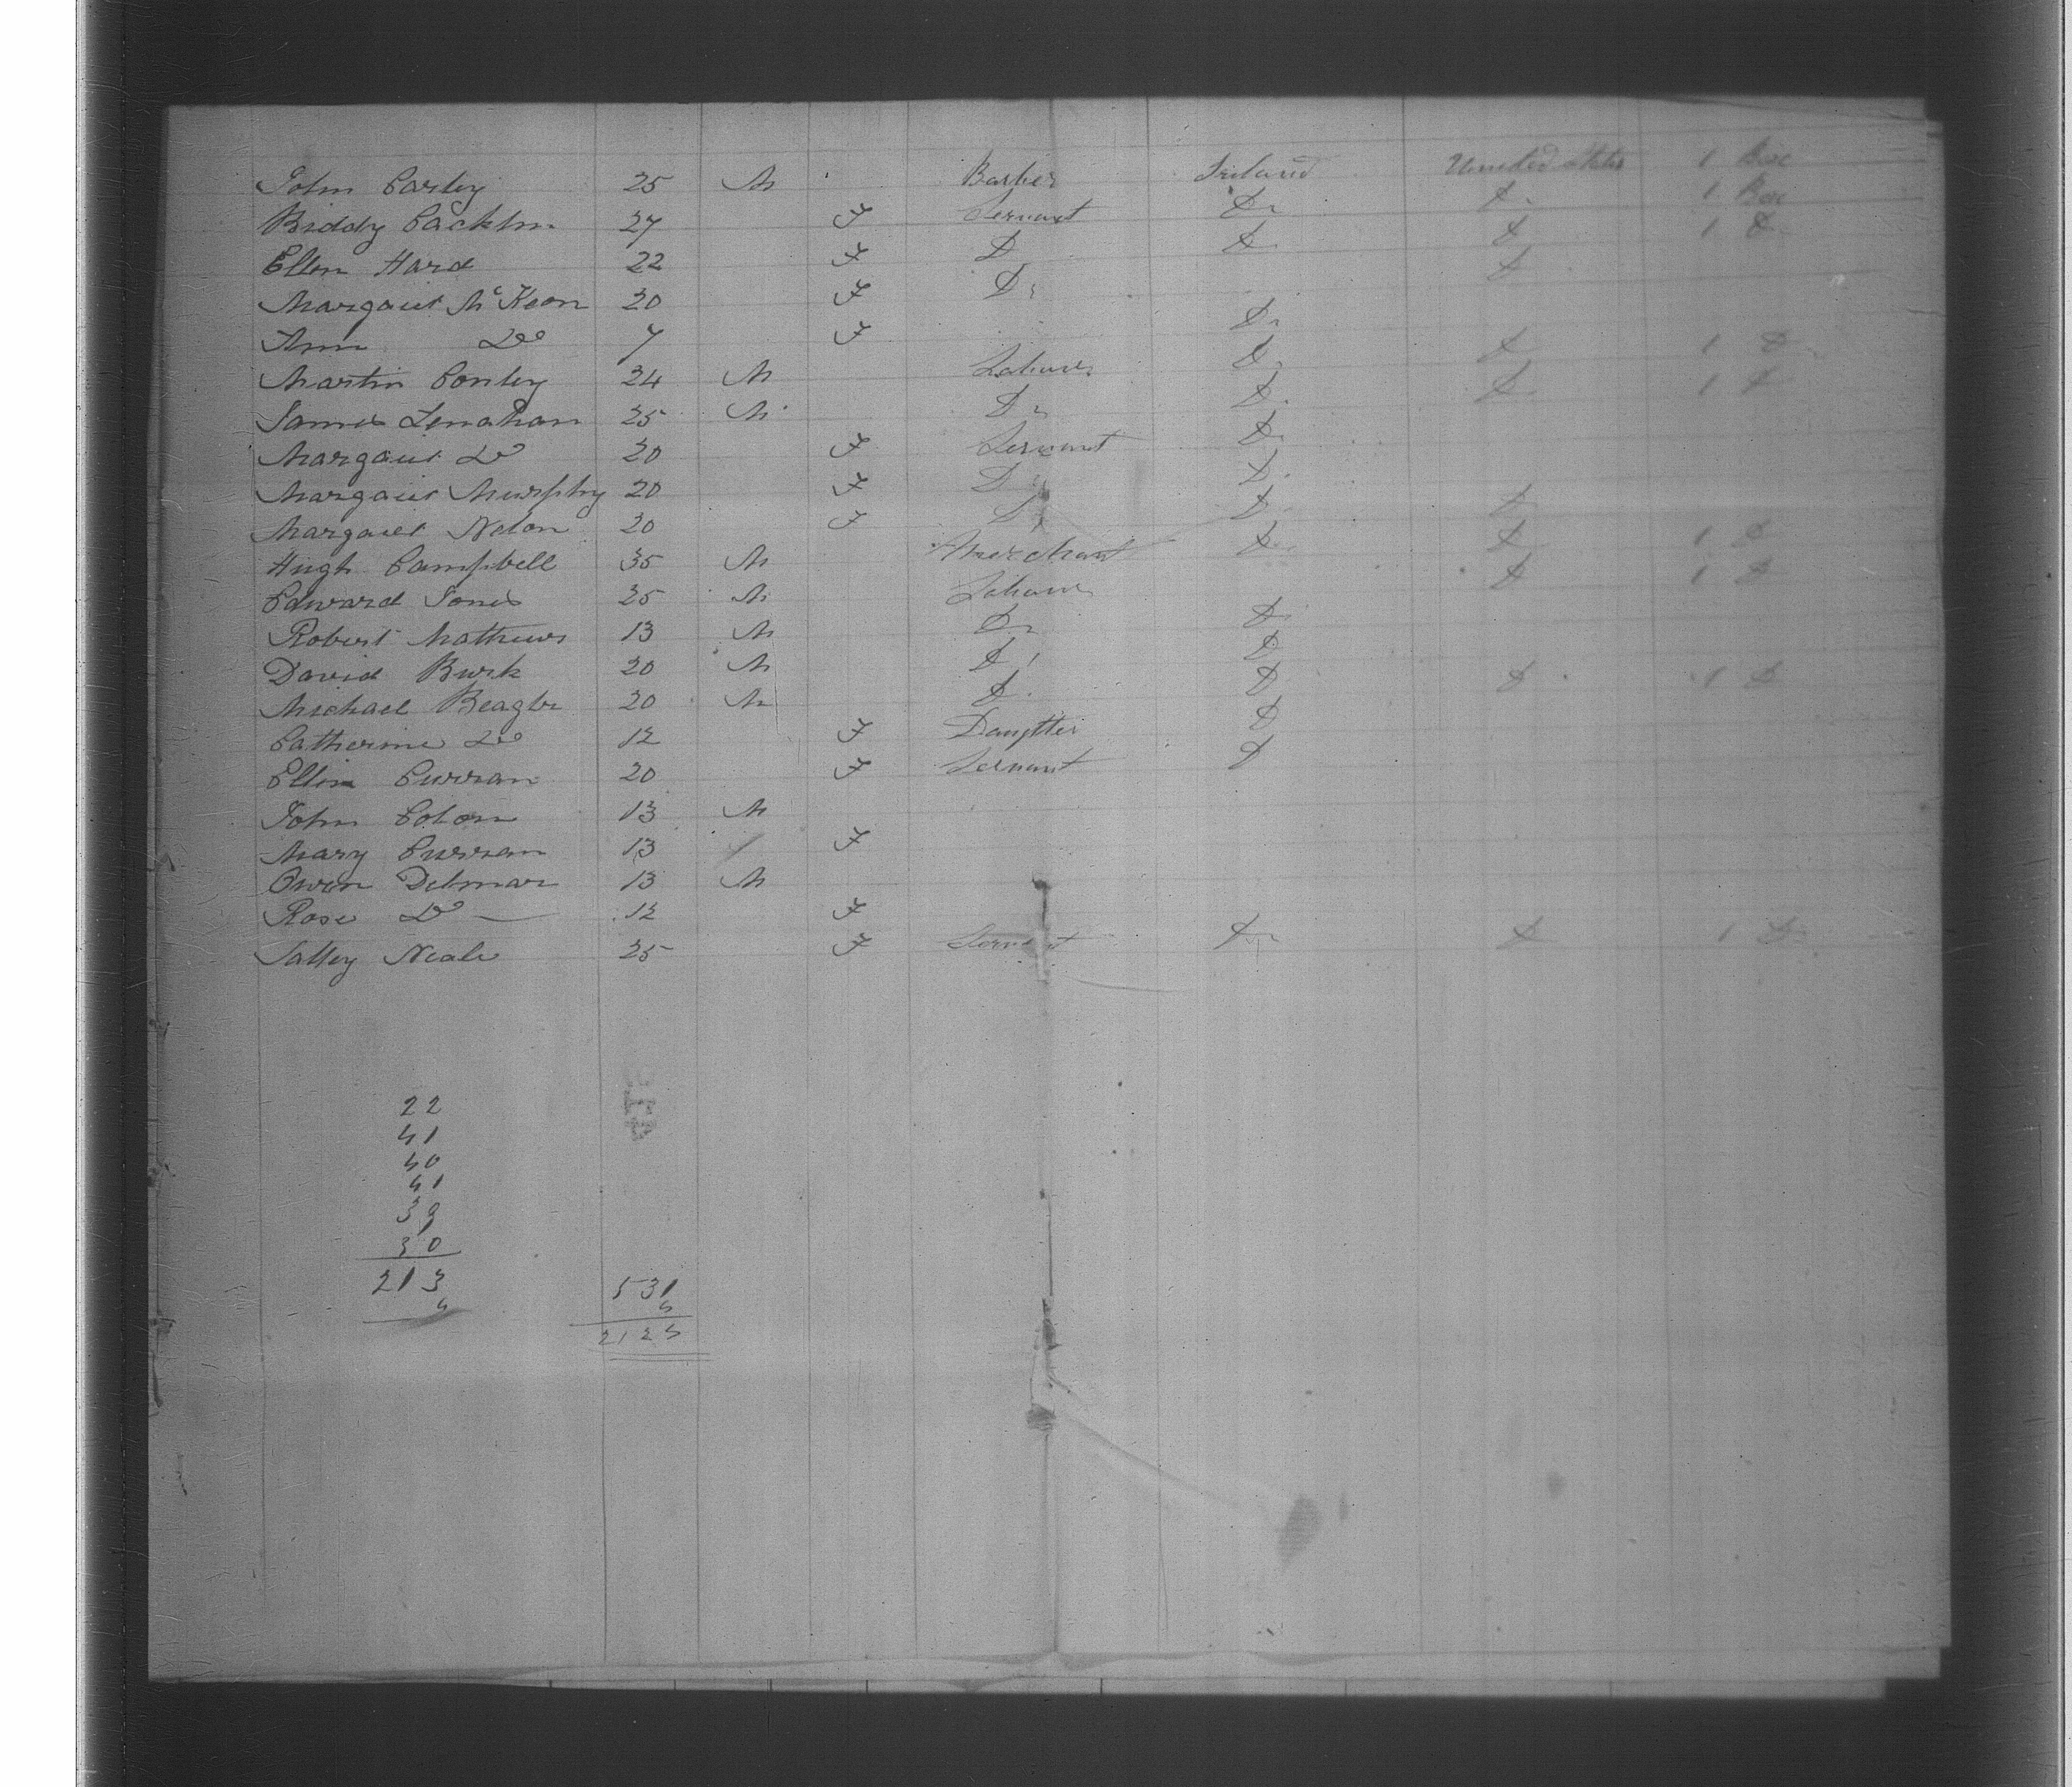 John Carley 25 M Barber Ireland United States 1 Box
Biddy Cacklin 27 F Servant Do Do 1 Box
Ellen Hard 22 F Do Do Do 1 Do
Margaret McKeon 20 F Do Do
Ann Do 7 F Do
Martin Conley 24 M Labourer Do Do 1 Do
James Lenahan 25 M Do Do Do 1 Do
Margaret Do 20 F Servant Do
Margaret Murphy 20 F Do Do
Margaret Nolon 20 F Do Do Do
Hugh Campbell 35 M Merchant Do Do 1 Do
Edward Jones 25 M Labourer Do 1 Do
Robert Mathews 13 M Do Do
David Burk 20 M Do Do
Michael Beagler 20 M Do Do Do 1 Do
Catherine Do 12 F Daughter Do
Ellen Curran 20 F Servant Do
John Colom 13 M
Mary Curran 13 F
Owen Delmar 13 M
Rose Do 12 F
Salley Neale 25 F Servant Do Do 1 Do
22
41
40
41
39
30
213
4
531
4
2124